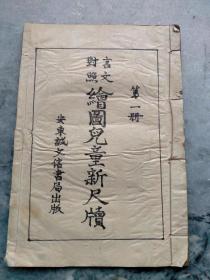 第一册
言文
對照
繪圖兒童新尺牘
安東誠文信書局出版